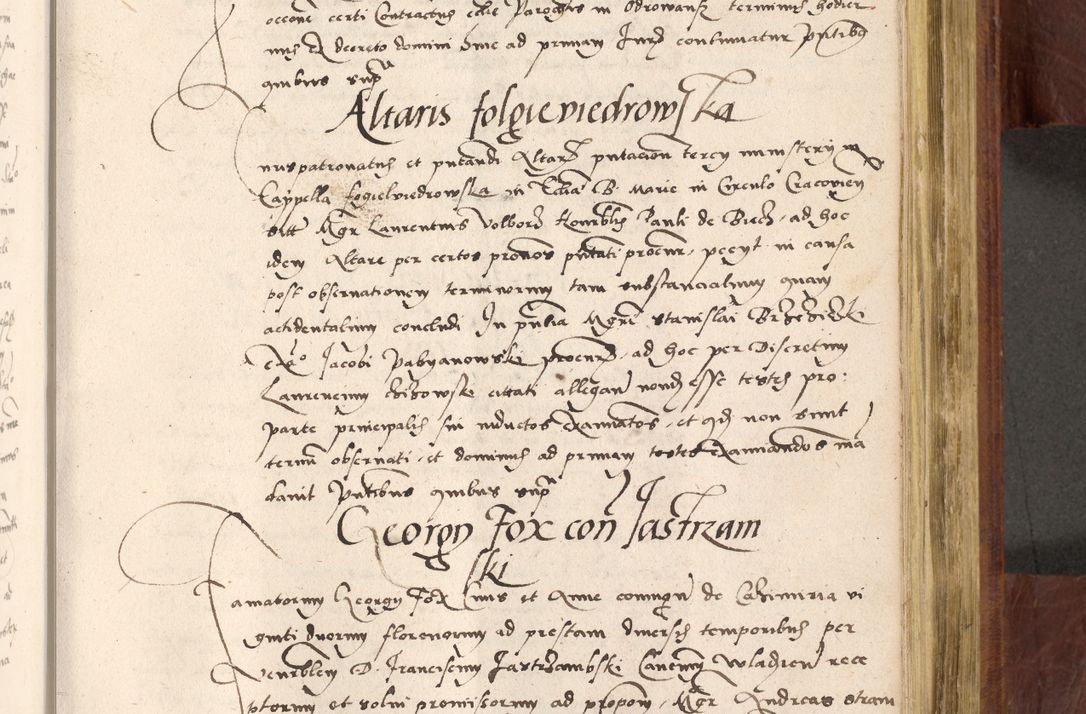 occone certi Contractus eccle Parochis in Odrowansz terminus hodier
nus Ex decreto domini Sine ad primam Jurd continuatur pntibs
quibus supa
Altaris folgieviedrowska
Juspatronatus et pntandi Altars pntacion tercy ministery in
Cappella fogielviedrowska in Ecclia B. Marie in Circulo Cracovien
citt Mgr Laurentius Volbors Honrblis Pauli de Biecz, ad hoc
idem Altare per certos pronos pntati procur, pecyt in causa
post observationem terminorum tam substancialium quam
accidentalium concludi In pntia Mgri Stanislai Brzezinski
Ex Jacobi Pabyanowski procurs, ad hoc per Discretum
Laurencium citati allegan nond esse testes pro
parte principalis sui inductos examiatos, et qd non sunt
termi observati, et dominus ad primam testes examiandos ma
davit pntibus quibus sup
Georgy Fox con Jastrzam
ski
Famatorum Georgy Fox Civis et Anne coniugu de Cazimiria vi
ginti duorum florenorum ad prestam diversis temporibus per
Venrblem D. Franciscum Jastrzambski Canicum Wladien rece
ptorum et solui promissorum ad propom, Mgr Andreas stram